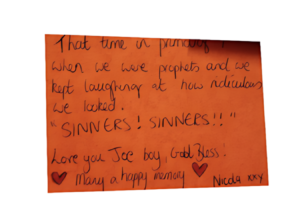 That time in primary
when we were prophets and we
kept laughing at how ridiculous
we looked.
"SINNERS! SINNERS!!"
Love you Joe boy, God Bless!
Many a happy memory
Nicola xxx